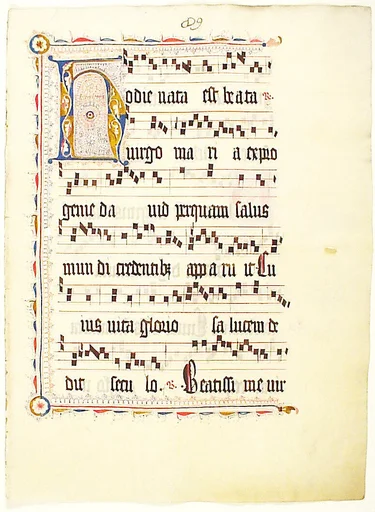 Hodie nata est beata ℟.
uirgo ma ri a ex pro
genie da uid per quam salus
mun di credentibꝫ appa ru it Cu
ius uita glorio sa lucem de
dit secu lo. ℟. Beatissi me uir